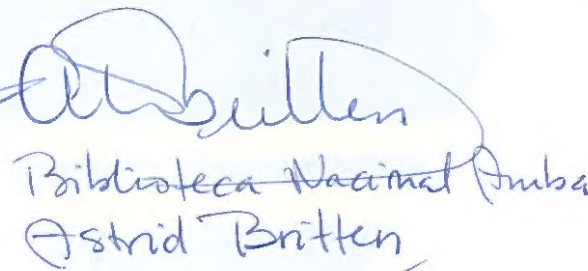 Britten
Biblioteca Nacional Aruba
Astrid Britten